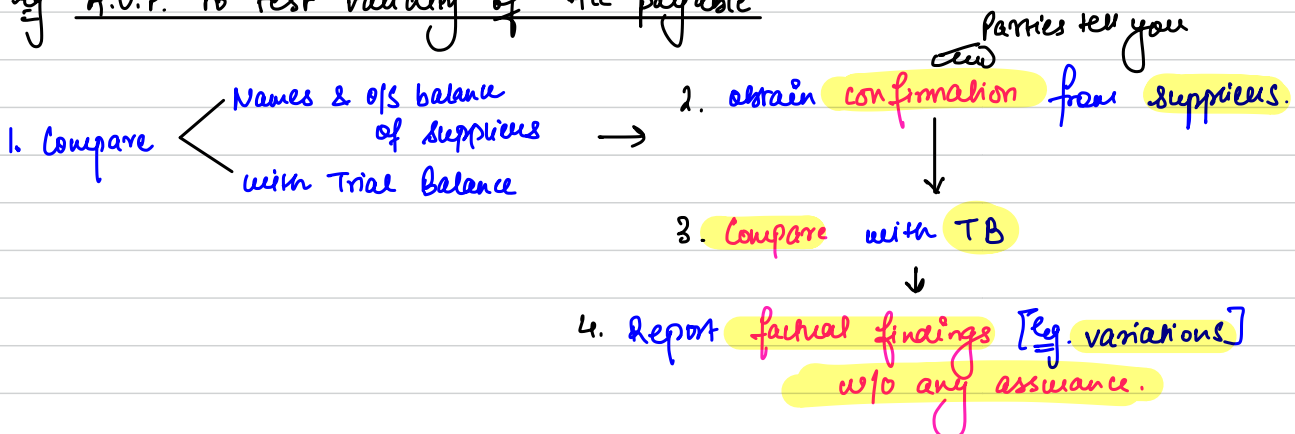 eg A.U.P. to test validity of A/c payable
Parties tell you
1. Compare
Names & o/s balance
of suppliers
with Trial Balance
2. obtain confirmation from suppliers.
3. Compare with TB
4. Report factual findings [eg. variations]
w/o any assurance.